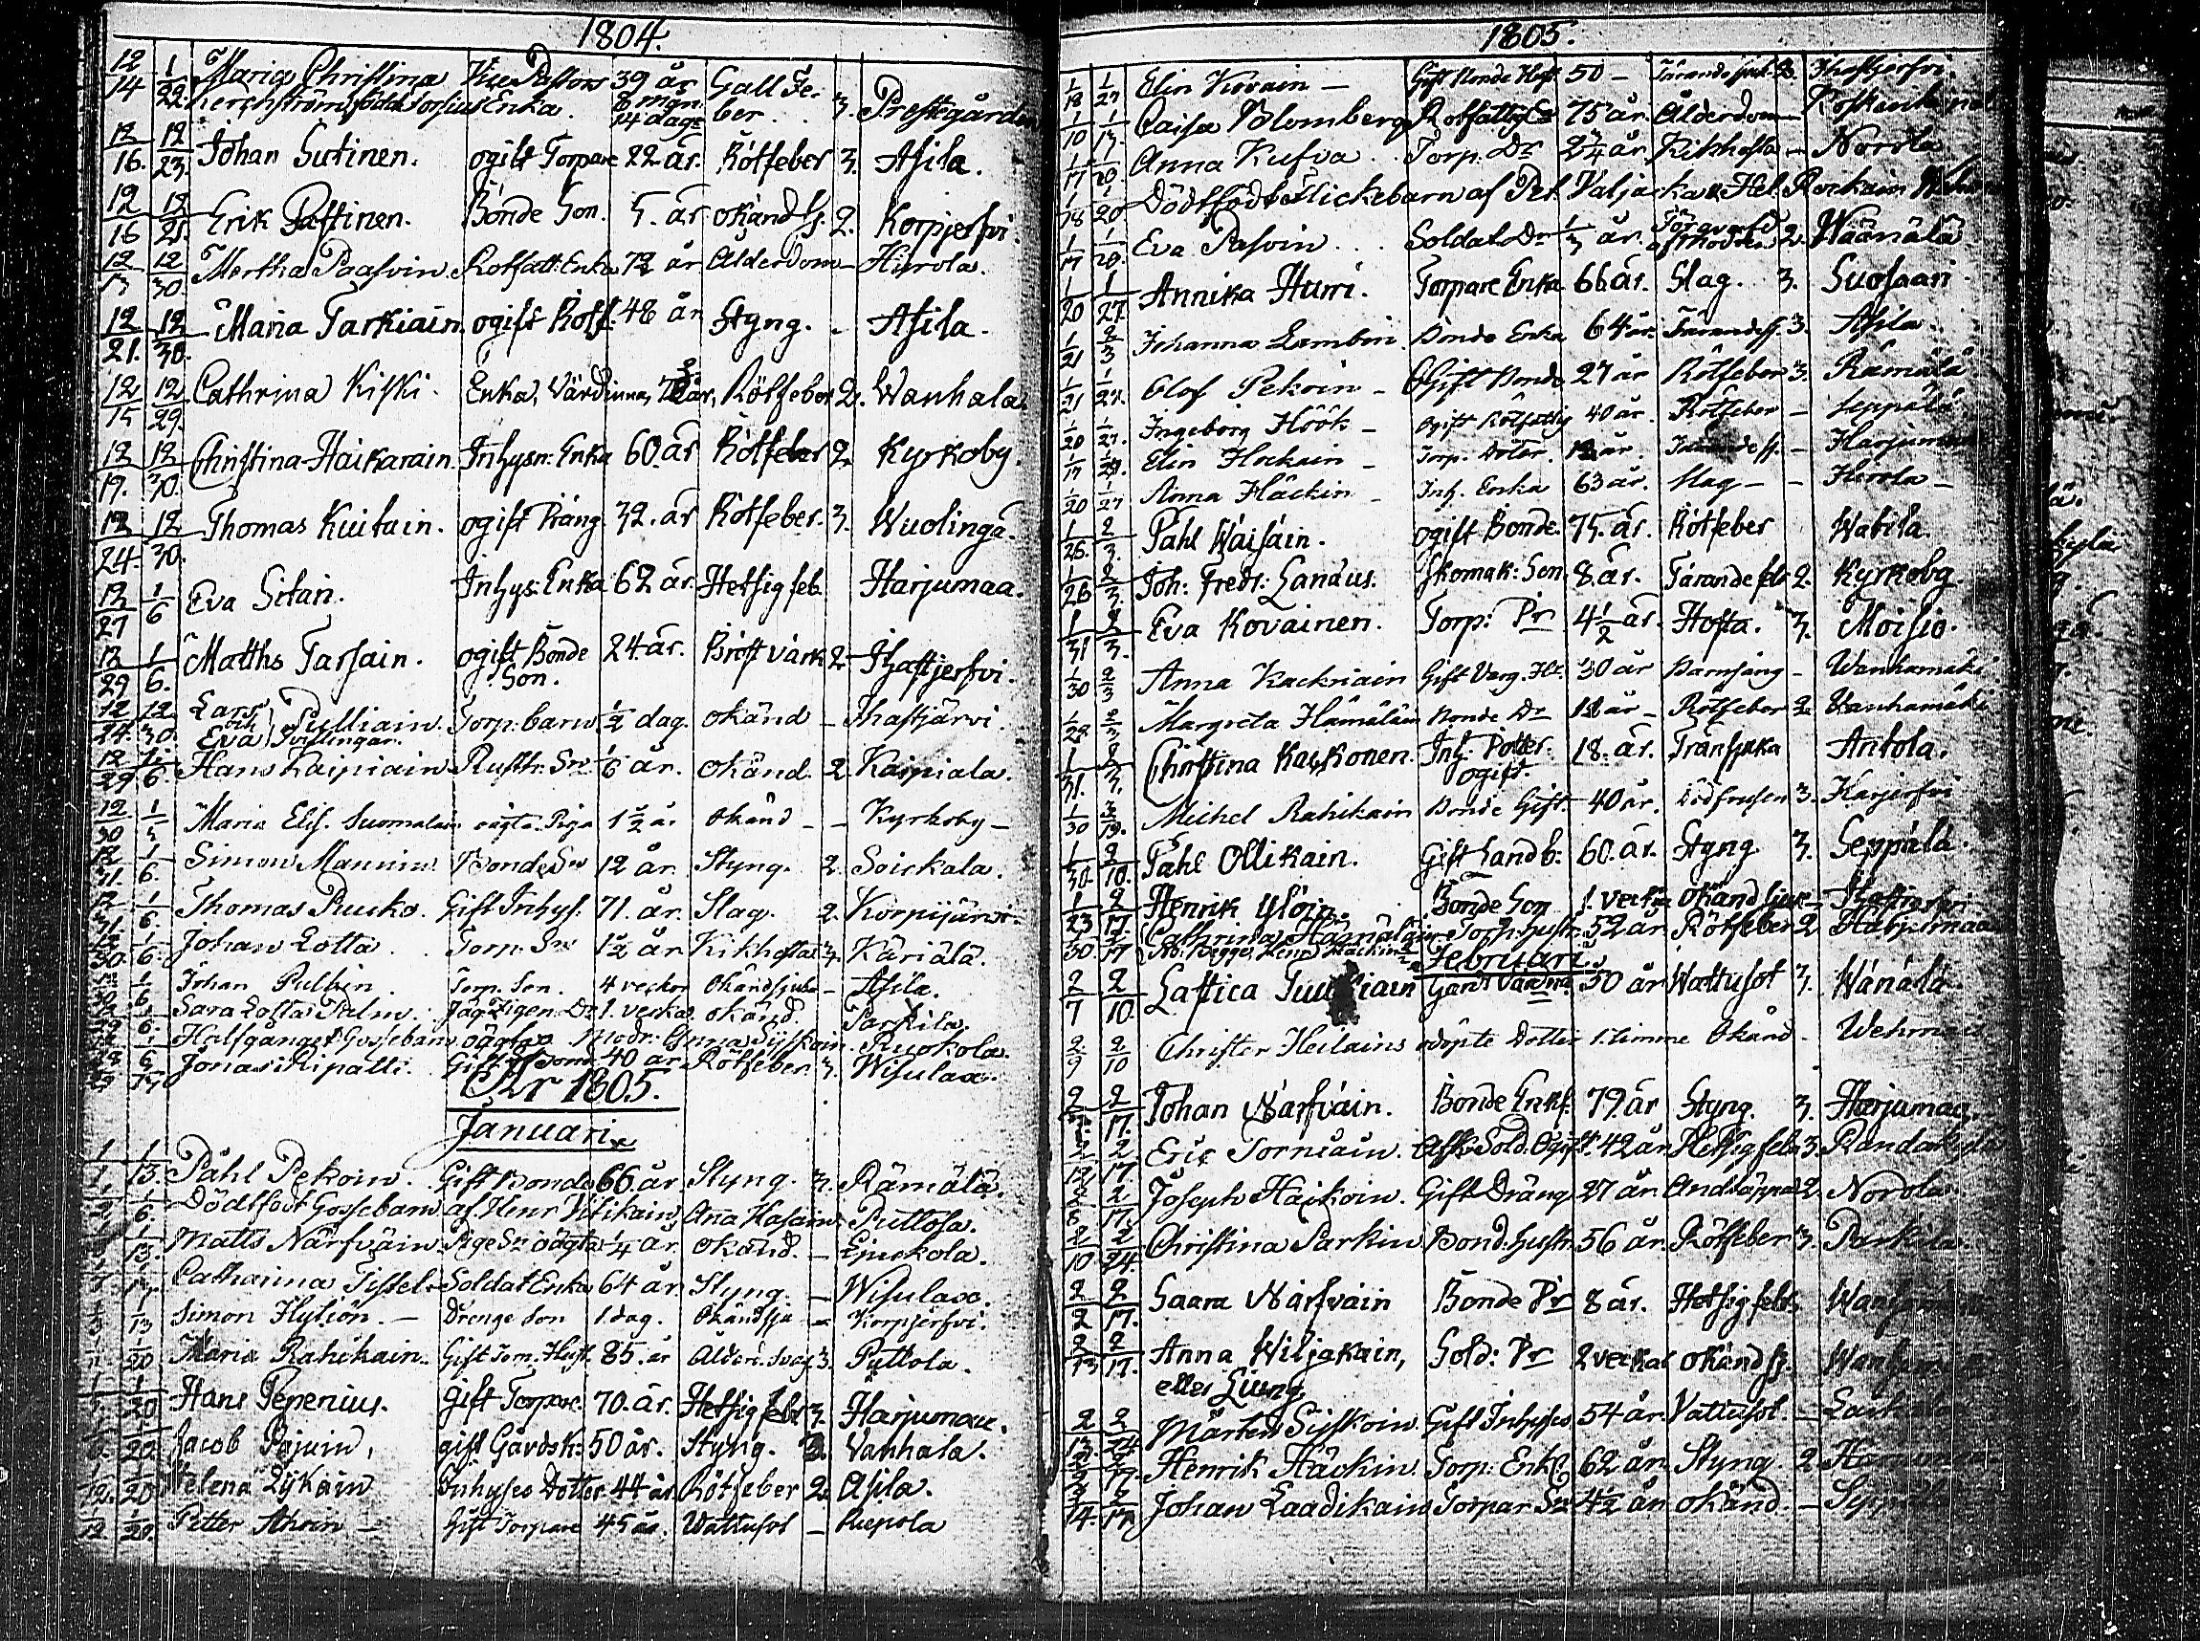 1804.
12/14 1/22 Maria Christina Vice Pastors 39 år Gall Fe-
Kerchström född Forsius Enka. 8 mon: 14 dag: ber. 3. Prestgården
12/16. 12/23. Johan Sutinen. ogift Torpare 22 år. Rötfeber 3. Asila.
12/16 12/21. Erik Pastinen. Bonde Son. 5. år okänd Sj. 2. Korpjerfvi.
12/13 12/30 Mertha Paasoin. Rotfatt: Enka 72 år Ålderdom – Hirola.
12/21. 12/30. Maria Tarkiain ogift Rotf: 48 år Styng. - Asila.
12/15 12/29. Cathrina Kiski. Enka, Värdinna, år, Rötfeber 2. Wanhala.
12/19. 12/30. Christina Haikarain Inhysn: Enka 60. år Rötfeber 2. Kyrkoby.
12/24. 12/30. Thomas Kuitain. ogift Dräng. 32. år Rötfeber. 3. Wuolinga.
12/27 1/6 Eva Sitari. Inhys: Enka 62 år. Hetsig feb. Harjumaa.
12/29 1/6. Matths Tarsain. ogift Bonde 24. år. Bröst värk 2. Ihastjerfvi.
Son.
12/24. 12/30. Lars
och Pulliain. Torp: barn 1/2 dag. okänd – Ihastjärvi.
Eva Tvillingar.
12/29 1/6. Hans Kaipiain Rusth: Sn 1/6 år. okänd. 2. Kaipiala.
12/30 1/5 Maria Elis. Suomalain oägta Piga 1 1/2 år okänd – – Kyrkoby –
12/31. 1/6. Simon Mannin. Bonde Sn 12 år Styng. 2. Soickala.
12/31. 1/6. Thomas Rucko. Gift Inhys: 71. år. Slag. 2. Korpijärvi.
12/30. 1/6. Johan Lotta. Torp. Sn 1 1/2 år Kikhosta 3. Käriälä.
1/6 Johan Pullin. Torp. Son. 4 veckor Okänd sjuk – Asila.
1/6. Sara Lotta Palm. Jäg: Pigen. Dr 1. vecka. okänd. Parkila.
Halfgånget Gossebarn oägta Modr: Anna Sysikain. Ruokola.
Jonas Ripatti. Gift 40 år Rötfeber. 3. Wisulax.
År 1805.
Januari
1/1. 1/13. Påhl Pekoin. Gift Bonde 66. år Styng. 3. Rämälä.
1/6. Dödtfödt Gossebarn af. Henr Vitikain, Ana Hasain. Puttosa.
1/13. Matts Närfväin Pige Sn oägta 1/4 år okänd. – Liuckola.
Catharina Tissel. Soldat Enka 64 år Styng. – Wisulax.
1/13 Simon Hytiön. – Drenge Son 1. dag. Okänd sju – Korpjerfvi.
1/20 Maria Rahikain. Gift Torp. Hust. 85. år Ålderd. svag 3. Puttola.
1/20 Hans Pepenius. gift Torpare. 70. år. Hetsig feber 3. Harjumaa.
Jacob Pajuin, gift Gårdsk: 50 år. Styng. 2. Vanhala.
1/12. 1/20 Helena Lykain Inhyses Dotter 44 år Rötfeber 2. Asila.
1/12 1/20. Petter Ahoin – Gift Torpare 45 år. Wattusot – Liepola
1805.
1/18 1/27 Elin Kovain – Gift Bonde Hust 50 – Tärande sjuk. 2. Ihastjerfvi.
1/10 1/13. Caisa Blomberg Rotfattig 75 år. Ålderdom –
1/17 1/20. Anna Kufva. Torp: Dr 2 3/4 år Kikhosta – Norola
1/18 1/20 Dödtfödt Flickebarn af Pet. Valjacka & Hel. Reckain
1/17 1/20. Eva Pasoin. Soldat Dr 1/3 år. 2. Wäänälä
1/20 1/27. Annika Hurri. Torpare Enka 66 år. Slag. 3. Suosaari
1/21 2/3 Johanna Lambin. Bonde Enka 64 år. Tärandes. 3. Asila.
1/21 1/27. Olof Pekoin – Ogift Bonde 27 år Rötfeber 3. Rämälä.
1/20 1/27. Ingeborg Höök – Ogift Rotfattig 40 år. Rötfeber – Seppälä
1/17 Elin Hockain – Torp. Doter. 12 år. – Harjumaa
1/20 1/27 Anna Häckin – Inh. Enka 63 år. Slag – – Hirola –
1/26. 2/3. Påhl Wäisäin. ogift Bonde. 75. år. Rötfeber Watila.
1/26 2/3. Joh: Fredr: Sandus. Skomak: Son 8. år. Tärande feb 2. Kyrkoby.
1/31 2/3. Eva Kovainen. Torp: Pr 4 1/2 år. Hosta. 3. Moisio.
1/30 2/3 Anna Kackriain Gift Verg. Hr. 30 år Barnsäng – Wanhamäki
1/28 2/3 Margreta Hämäläin Bonde Dr 12 år – Rötfeber 2. Vanhamäki
1/31. 2/3. Christina Kackonen. Inh: Dotter 18. år. Transjuka Antola.
ogift.
1/30 3/19. Michel Rahikain Bonde Gift. 40 år. Dödfrusen 3. Harjerfvi
1/30. 2/10. Påhl Ollikain. Gift Landb: 60. år. Styng 3. Seppälä.
1/23 2/17. Henrik Ylöin Bonde Son 1. vecka okänd sjuk –
1/30. 2/17 Cathrina Hämäläin Torp: hustr. 52 år Rötfeber 2 Harjumaa
Februari.
2/7 2/10. Lastica Gårds Värdina 50 år Wattusot 3. Wänälä.
2/9 2/10 Christer Heilains odöpte Dotter 1. timme Okänd – Wehmaa
2/17. Johan Närfväin. Bonde Enkl. 79 år Styng. 3. Harjumaa.
2/12 2/17. Eric Torniain. Afsk: Sold. Ogift. 42 år Hetsig feb 3. Randakylä
2/8 2/17. Joseph Haikoin. Gift Dräng 27 år Andtäppa 2. Norola
2/10 2/24. Christina Parkin Bond: hustr. 56 år. Rötfeber 3. Parkila.
2/2 2/17. Saara Närfväin Bonde Pr 8 år. Hetsig feb
2/13 2/17. Anna Wiljakain, Sold: Pr 2 veckor okänd sj.
eller Liung
2/13. 2/24 Mårten Sysikoin. Gift Inhyses 54 år Vattusot. –
2/17. Henrik Häckin. Torp: Enkl. 62 år. Styng. 2.
2/14. 2/17. Johan Laadikain Torpar Sn 4 1/2 år okänd. –